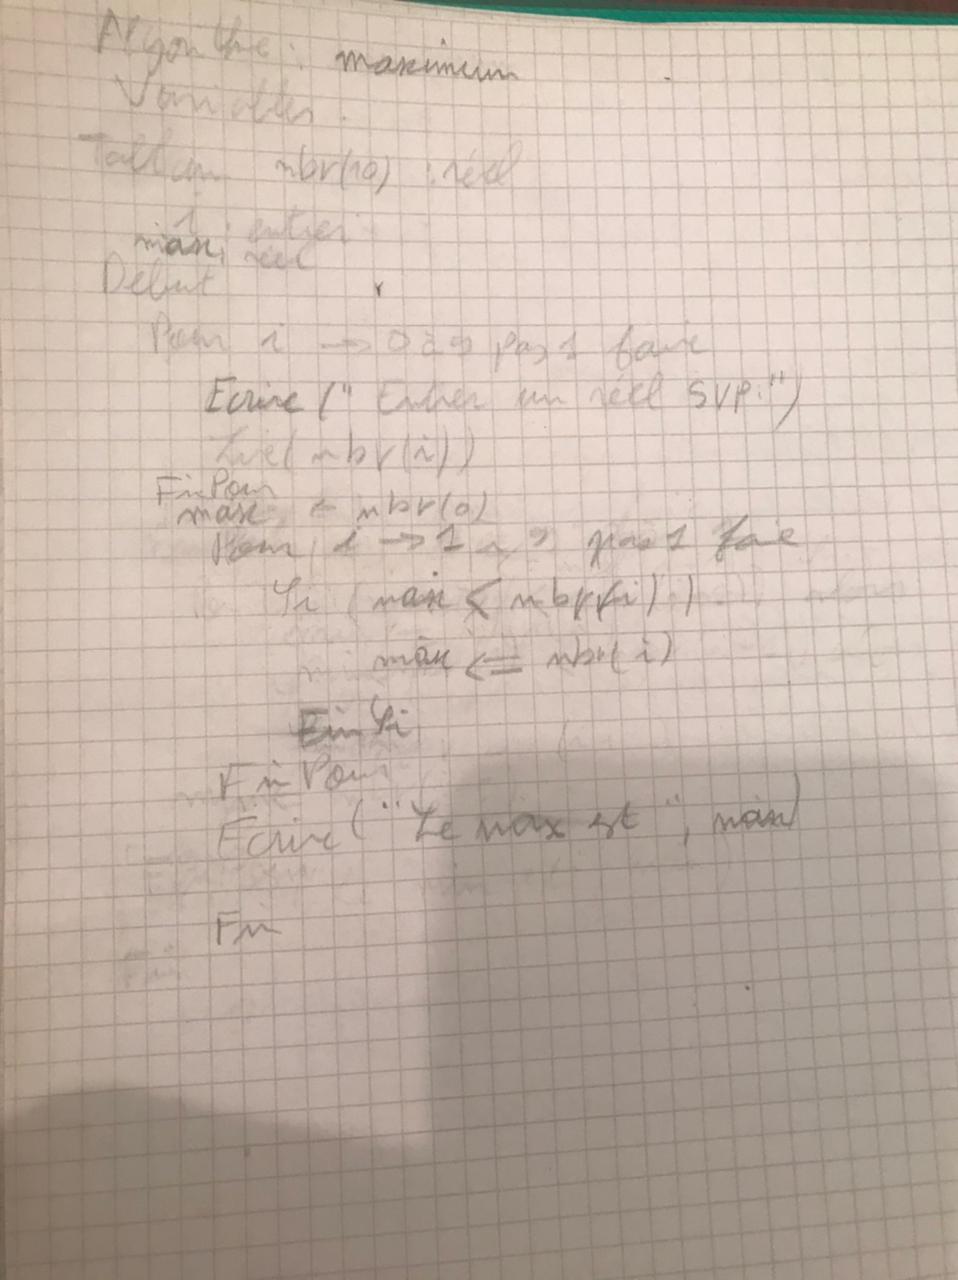 Algorithme : maximum
Variables :
Tableau nbr(10) : réel
i : entier
max : réel
Début
Pour i → 0 à 9 pas 1 faire
Ecrire (" Entrer un réel SVP : ")
Lire( nbr(i))
Fin Pour
max ← nbr(0)
Pour i → 1 à 9 pas 1 faire
Si (max < nbr(i))
max <= nbr(i)
Fin Si
Fin Pour
Ecrire ( "Le max est ", max)
Fin